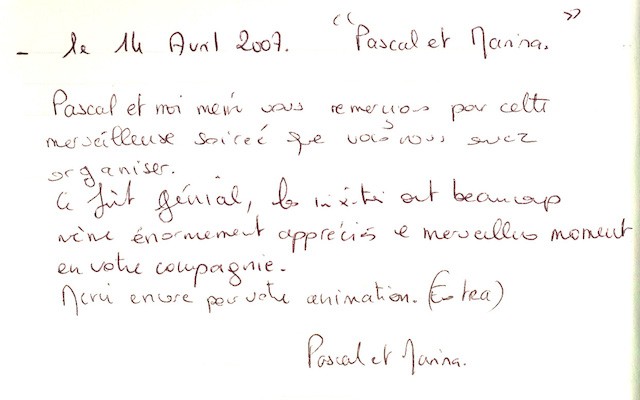 - le 14 Avril 2007. "Pascal et Marina."
Pascal et moi meme vous remercions pour cette
merveilleuse soireé que vous nous avez
organiser.
Ce fût génial, les invités ont beaucoup
même énormement appreciés ce merveilleux moment
en votre compagnie.
Merci encore pour votre animation. (Extra)
Pascal et Marina.